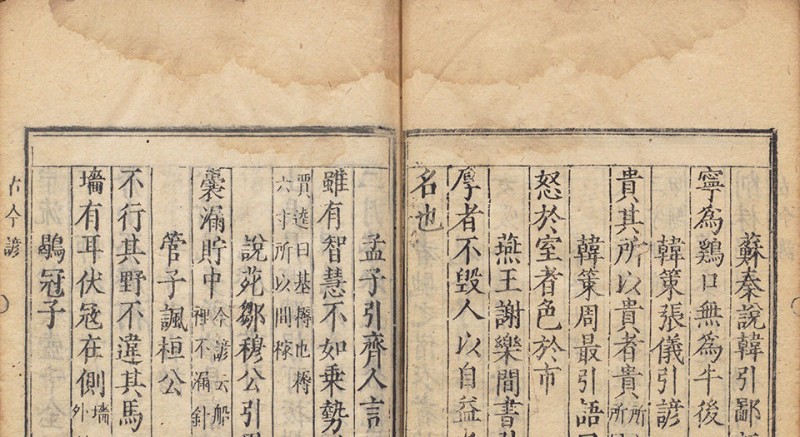 蘇秦說韓引鄙
寧為鷄口無為牛後
韓策張儀引諺
貴其所以貴者貴所所
韓策周最引語曰
怒於室者色於市
燕王謝樂間書引
厚者不毀人以自益
名也
孟子引齊人言
雖有智慧不如乘勢
賈逵曰基也耨
六寸所以間稼
說苑鄒穆公引
囊漏貯中今諺云船
裡不漏針
管子諷桓公
不行其野不違其馬
墻有耳伏寇在側墻
外
鶡冠子
古今諺